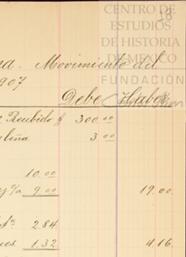 CENTRO DE
ESTUDIOS
DE HISTORIA
DE MEXICO
FUNDACIÓN
Movimiento del
907
Debe Haber
Recibido $ 300.00
3.00
10.00
9.00 19.00
2.84
1.32 4.16